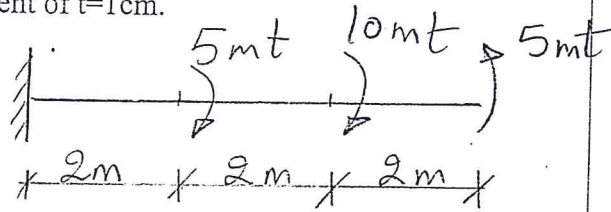 ent of t=1cm.
5mt
10mt
5mt
2m
2m
2m